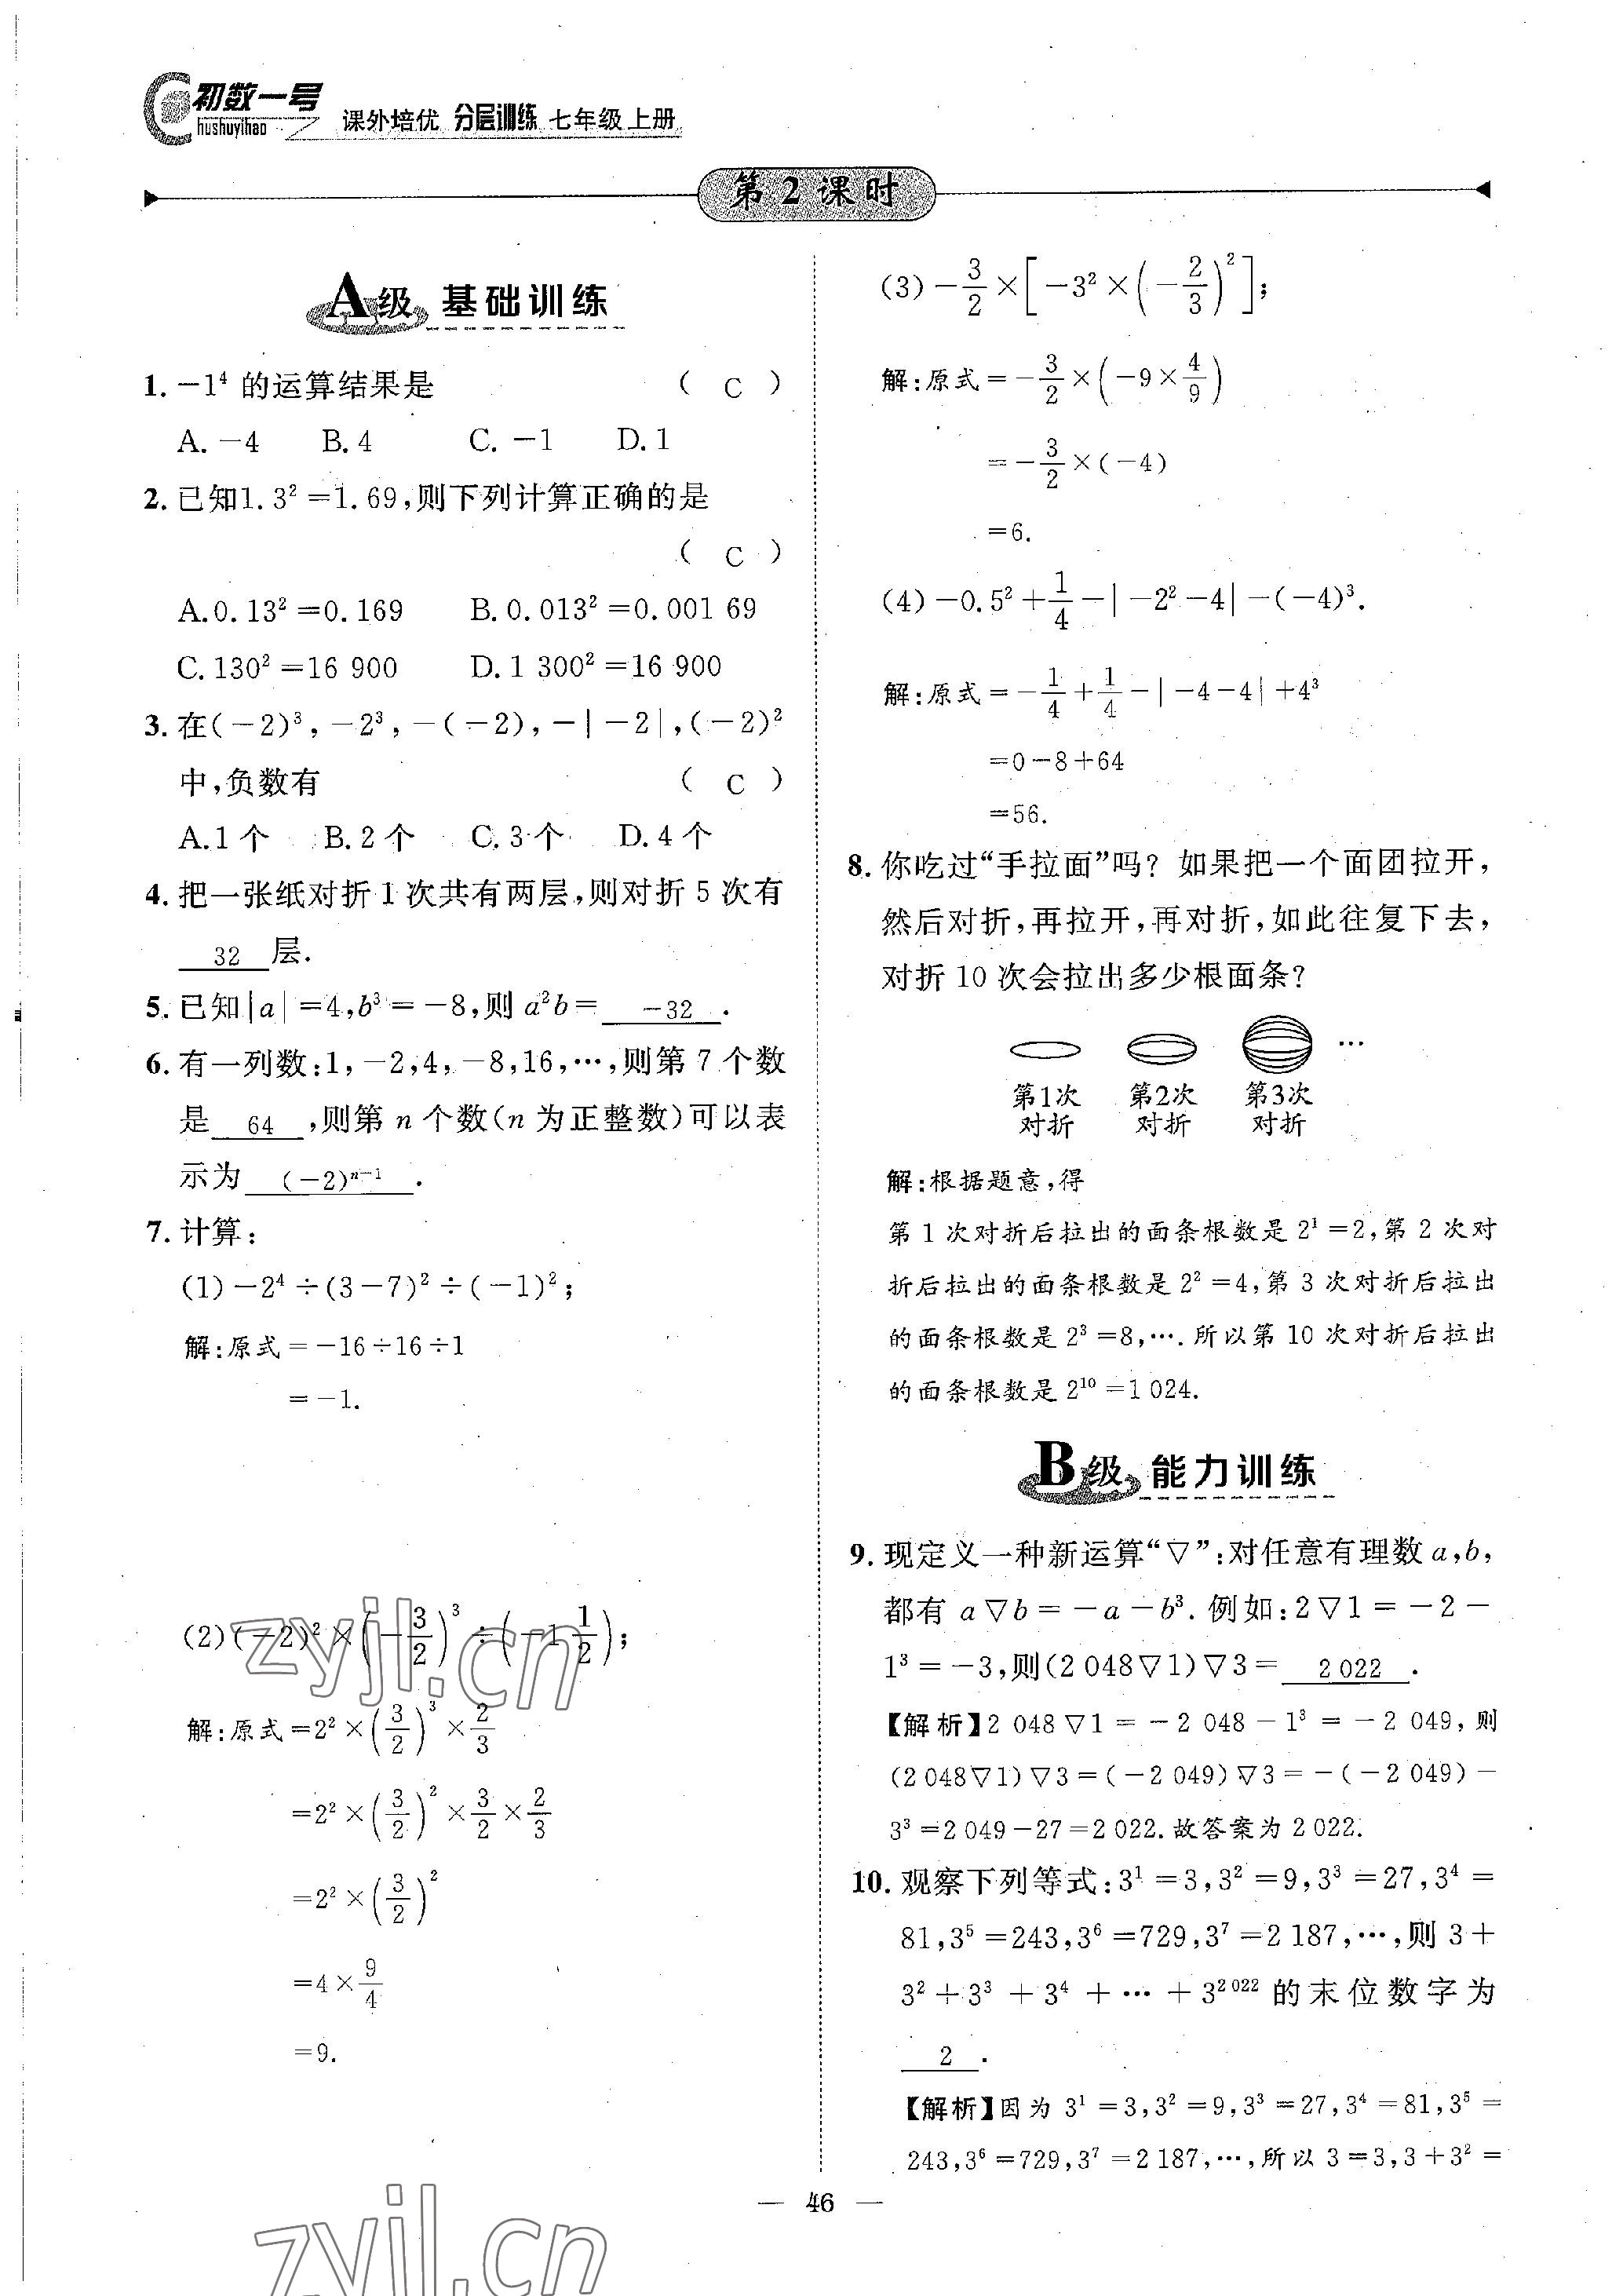 初数一号
hushuyihao
课外培优 分层训练 七年级上册
第2课时
A级 基础训练
1. −1⁴ 的运算结果是 ( C )
A. −4 B. 4 C. −1 D. 1
2. 已知1. 3² =1. 69,则下列计算正确的是
( C )
A. 0. 13² =0. 169 B. 0. 013² =0. 001 69
C. 130² =16 900 D. 1 300² =16 900
3. 在(−2)³, −2³, −(−2), −|−2|,(−2)²
中,负数有 ( C )
A. 1 个 B. 2 个 C. 3 个 D. 4 个
4. 把一张纸对折 1 次共有两层,则对折 5 次有
32 层.
5. 已知|a|=4,b³=−8,则 a²b= −32 .
6. 有一列数:1,−2,4,−8,16,…,则第 7 个数
是 64 ,则第 n 个数(n 为正整数)可以表
示为 (−2)ⁿ⁻¹ .
7. 计算:
(1)−2⁴÷(3−7)²÷(−1)²;
解:原式=−16÷16÷1
=−1.
(2)(−2)²×(−3/2)³÷(−1 1/2);
解:原式=2²×(3/2)³×2/3
=2²×(3/2)²×3/2×2/3
=2²×(3/2)²
=4×9/4
=9.
(3)−3/2×[−3²×(−2/3)²];
解:原式=−3/2×(−9×4/9)
=−3/2×(−4)
=6.
(4)−0. 5²+1/4−|−2²−4|−(−4)³.
解:原式=−1/4+1/4−|−4−4|+4³
=0−8+64
=56.
8. 你吃过“手拉面”吗? 如果把一个面团拉开,
然后对折,再拉开,再对折,如此往复下去,
对折 10 次会拉出多少根面条?
…
第1次 第2次 第3次
对折 对折 对折
解:根据题意,得
第 1 次对折后拉出的面条根数是 2¹=2,第 2 次对
折后拉出的面条根数是 2²=4,第 3 次对折后拉出
的面条根数是 2³=8,…. 所以第 10 次对折后拉出
的面条根数是 2¹⁰=1 024.
B级 能力训练
9. 现定义一种新运算“▽”:对任意有理数 a,b,
都有 a▽b=−a−b³. 例如:2▽1=−2−
1³=−3,则(2 048▽1)▽3= 2 022 .
【解析】2 048▽1=−2 048−1³=−2 049,则
(2 048▽1)▽3=(−2 049)▽3=−(−2 049)−
3³=2 049−27=2 022. 故答案为 2 022.
10. 观察下列等式:3¹=3,3²=9,3³=27,3⁴=
81,3⁵=243,3⁶=729,3⁷=2 187,…,则 3+
3²+3³+3⁴+…+3²⁰²² 的末位数字为
2 .
【解析】因为 3¹=3,3²=9,3³=27,3⁴=81,3⁵=
243,3⁶=729,3⁷=2 187,…,所以 3=3,3+3²=
— 46 —
zyjl.cn
zyjl.cn